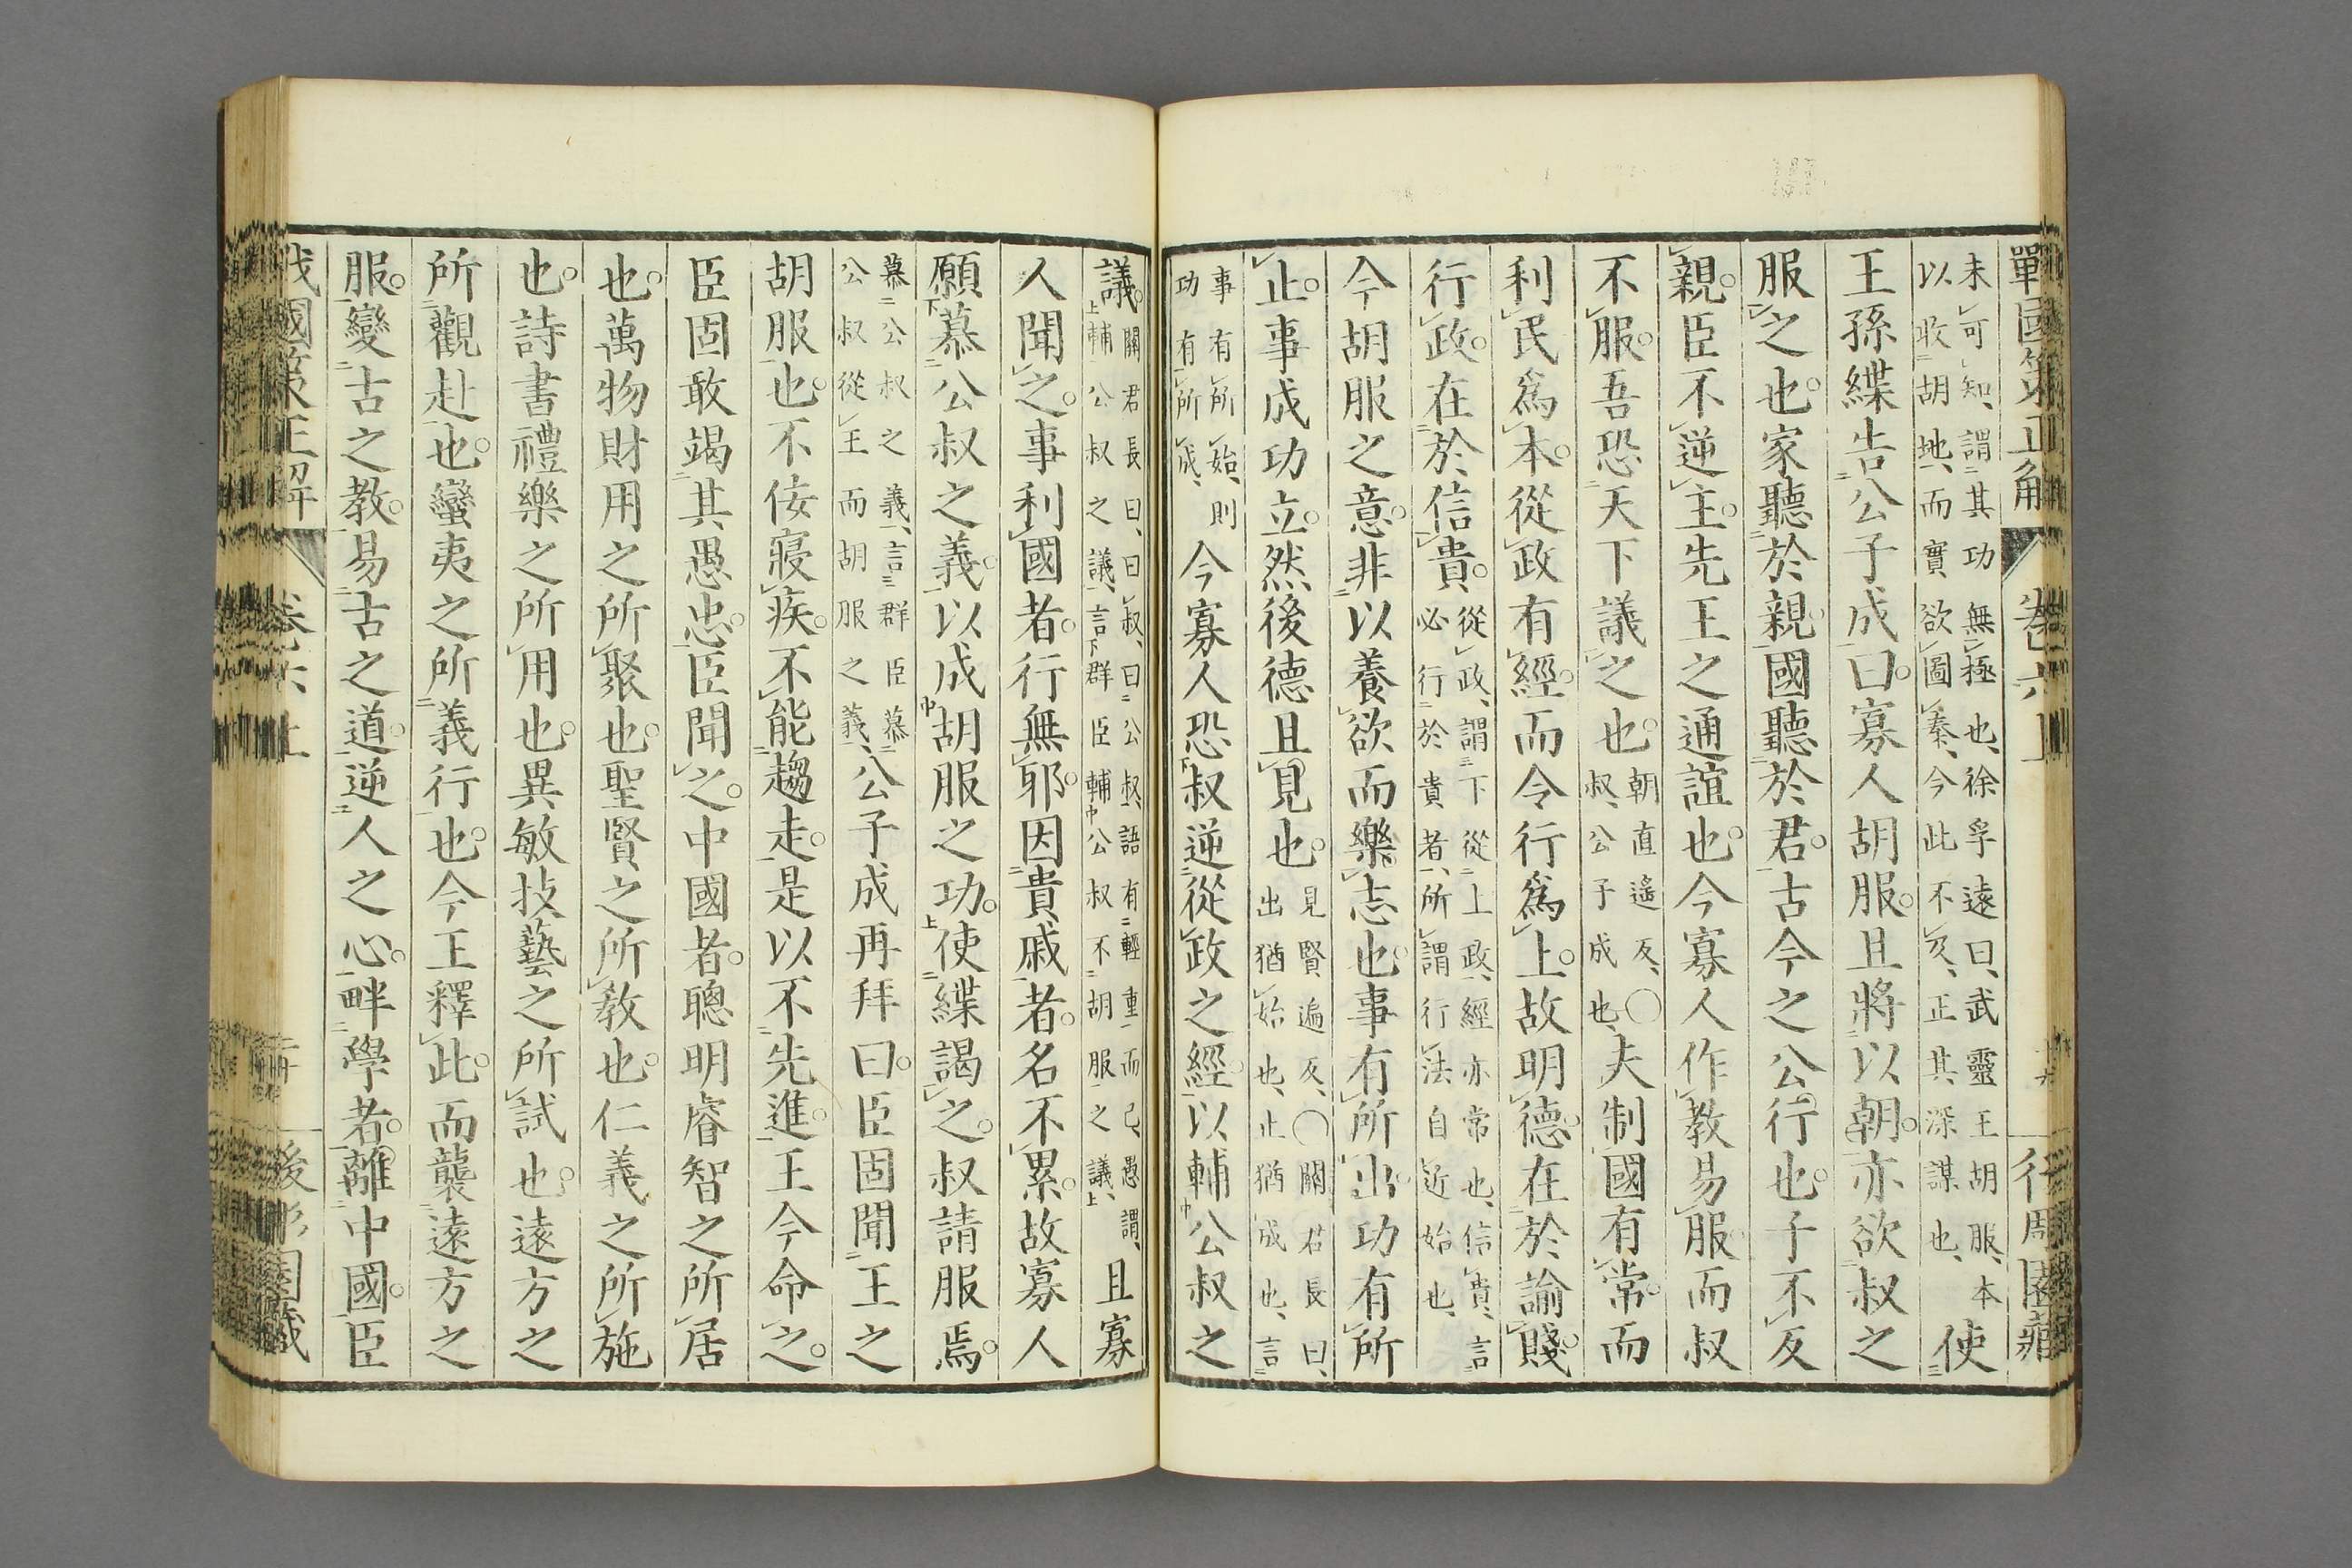 戰國策正解 卷六上
未可知、謂其功無極也、徐孚遠曰、武靈王胡服、本
以收胡地、而實欲圖秦、今此不及、正其深謀也、使
王孫緤告公子成曰。寡人胡服。且將以朝。亦欲叔之
服之也。家聽於親。國聽於君。古今之公行也。子不反
親。臣不逆主。先王之通誼也。今寡人作教易服而叔
不服。吾恐天下議之也。朝直遙反、〇叔、公子成也、夫制國有常。而
利民爲本。從政有經。而令行爲上。故明德。在於論賤。
行政。在於信貴。從政、謂下從上政、經亦常也、信貴、言必行於貴者、所謂行法自近始也、
今胡服之意。非以養欲而樂志也。事有所出。功有所
止。事成功立。然後德且見也。見賢遍反、〇關君長曰、出猶始也、止猶成也、言
事有所始、則功有所成、今寡人恐叔逆從政之經。以輔公叔之
議。關君長曰、曰叔、曰公叔、語有輕重而已、愚謂、輔公叔之議、言群臣輔公叔不胡服之議、且寡
人聞之。事利國者。行無邪。因貴戚者。名不累。故寡人
願慕公叔之義。以成胡服之功。使緤謁之。叔請服焉。
慕公叔之義、言群臣慕公叔從王而胡服之義、公子成再拜曰。臣固聞王之
胡服也。不佞寢疾。不能趨走。是以不先進。王今命之。
臣固敢竭其愚忠。臣聞之。中國者。聰明睿智之所居
也。萬物財用之所聚也。聖賢之所教也。仁義之所施
也。詩書禮樂之所用也。異敏技藝之所試也。遠方之
所觀赴也。蠻夷之所義行也。今王釋此。而襲遠方之
服。變古之教。易古之道。逆人之心。畔學者。離中國。臣
戰國策正解 卷六上